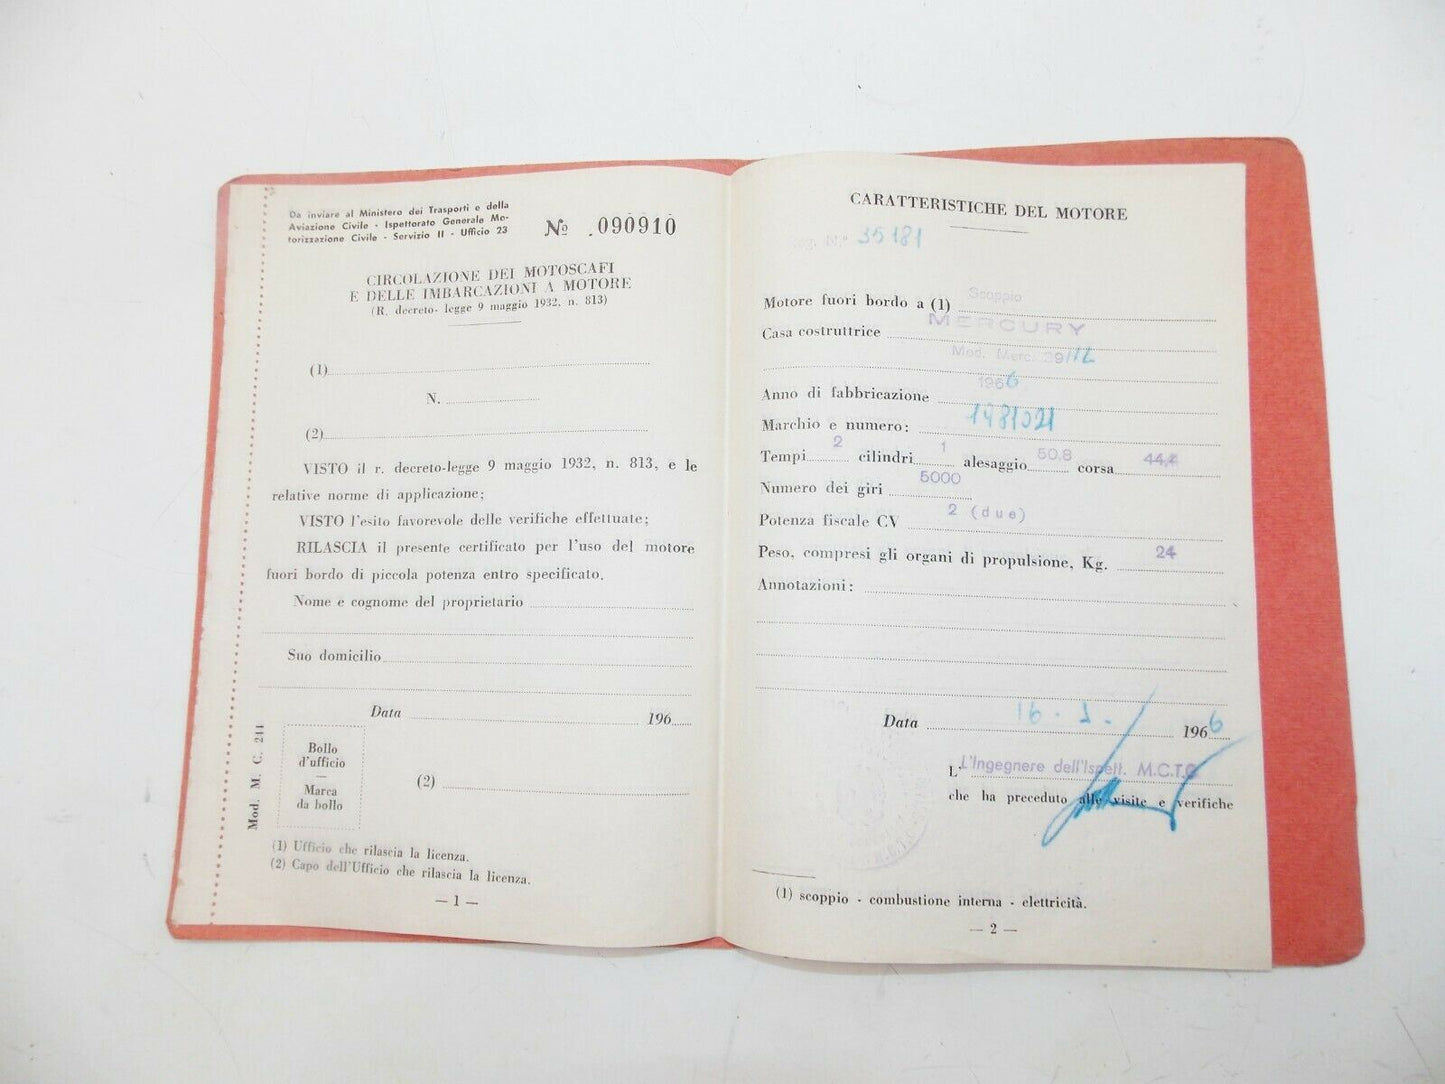 Da inviare al Ministero dei Trasporti e della
Aviazione Civile - Ispettorato Generale Mo-
torizzazione Civile - Servizio II - Ufficio 23
Nº 090910
CIRCOLAZIONE DEI MOTOSCAFI
E DELLE IMBARCAZIONI A MOTORE
(R. decreto-legge 9 maggio 1932, n. 813)
(1)
N.
(2)
VISTO il r. decreto-legge 9 maggio 1932, n. 813, e le
relative norme di applicazione;
VISTO l'esito favorevole delle verifiche effettuate;
RILASCIA il presente certificato per l'uso del motore
fuori bordo di piccola potenza entro specificato.
Nome e cognome del proprietario
Suo domicilio
Data 196
Bollo
d'ufficio
—
Marca
da bollo
(2)
Mod. M. C. 244
(1) Ufficio che rilascia la licenza.
(2) Capo dell'Ufficio che rilascia la licenza.
— 1 —
CARATTERISTICHE DEL MOTORE
N.º 35181
Motore fuori bordo a (1) Scoppio
Casa costruttrice MERCURY
Mod. Merc. 39/12
Anno di fabbricazione 1966
Marchio e numero: 1981021
Tempi 2 cilindri 1 alesaggio 50,8 corsa 44,4
Numero dei giri 5000
Potenza fiscale CV 2 (due)
Peso, compresi gli organi di propulsione, Kg. 24
Annotazioni:
Data 16 - 1 - 1966
L' L'Ingegnere dell'Ispett. M.C.T.C
che ha preceduto alle visite e verifiche
(1) scoppio - combustione interna - elettricità.
— 2 —